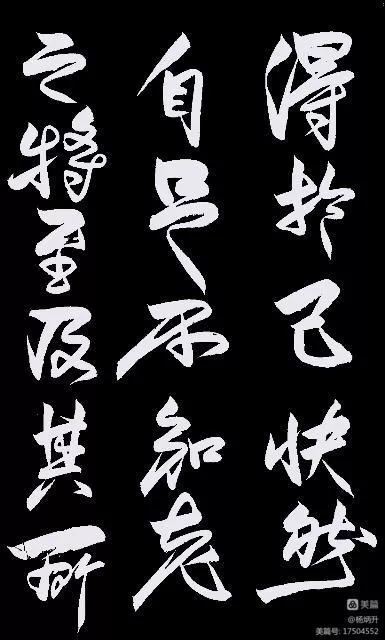 得於己快然
自足不知老
之将至及其所
美篇
@杨炳升
美篇号: 17504552